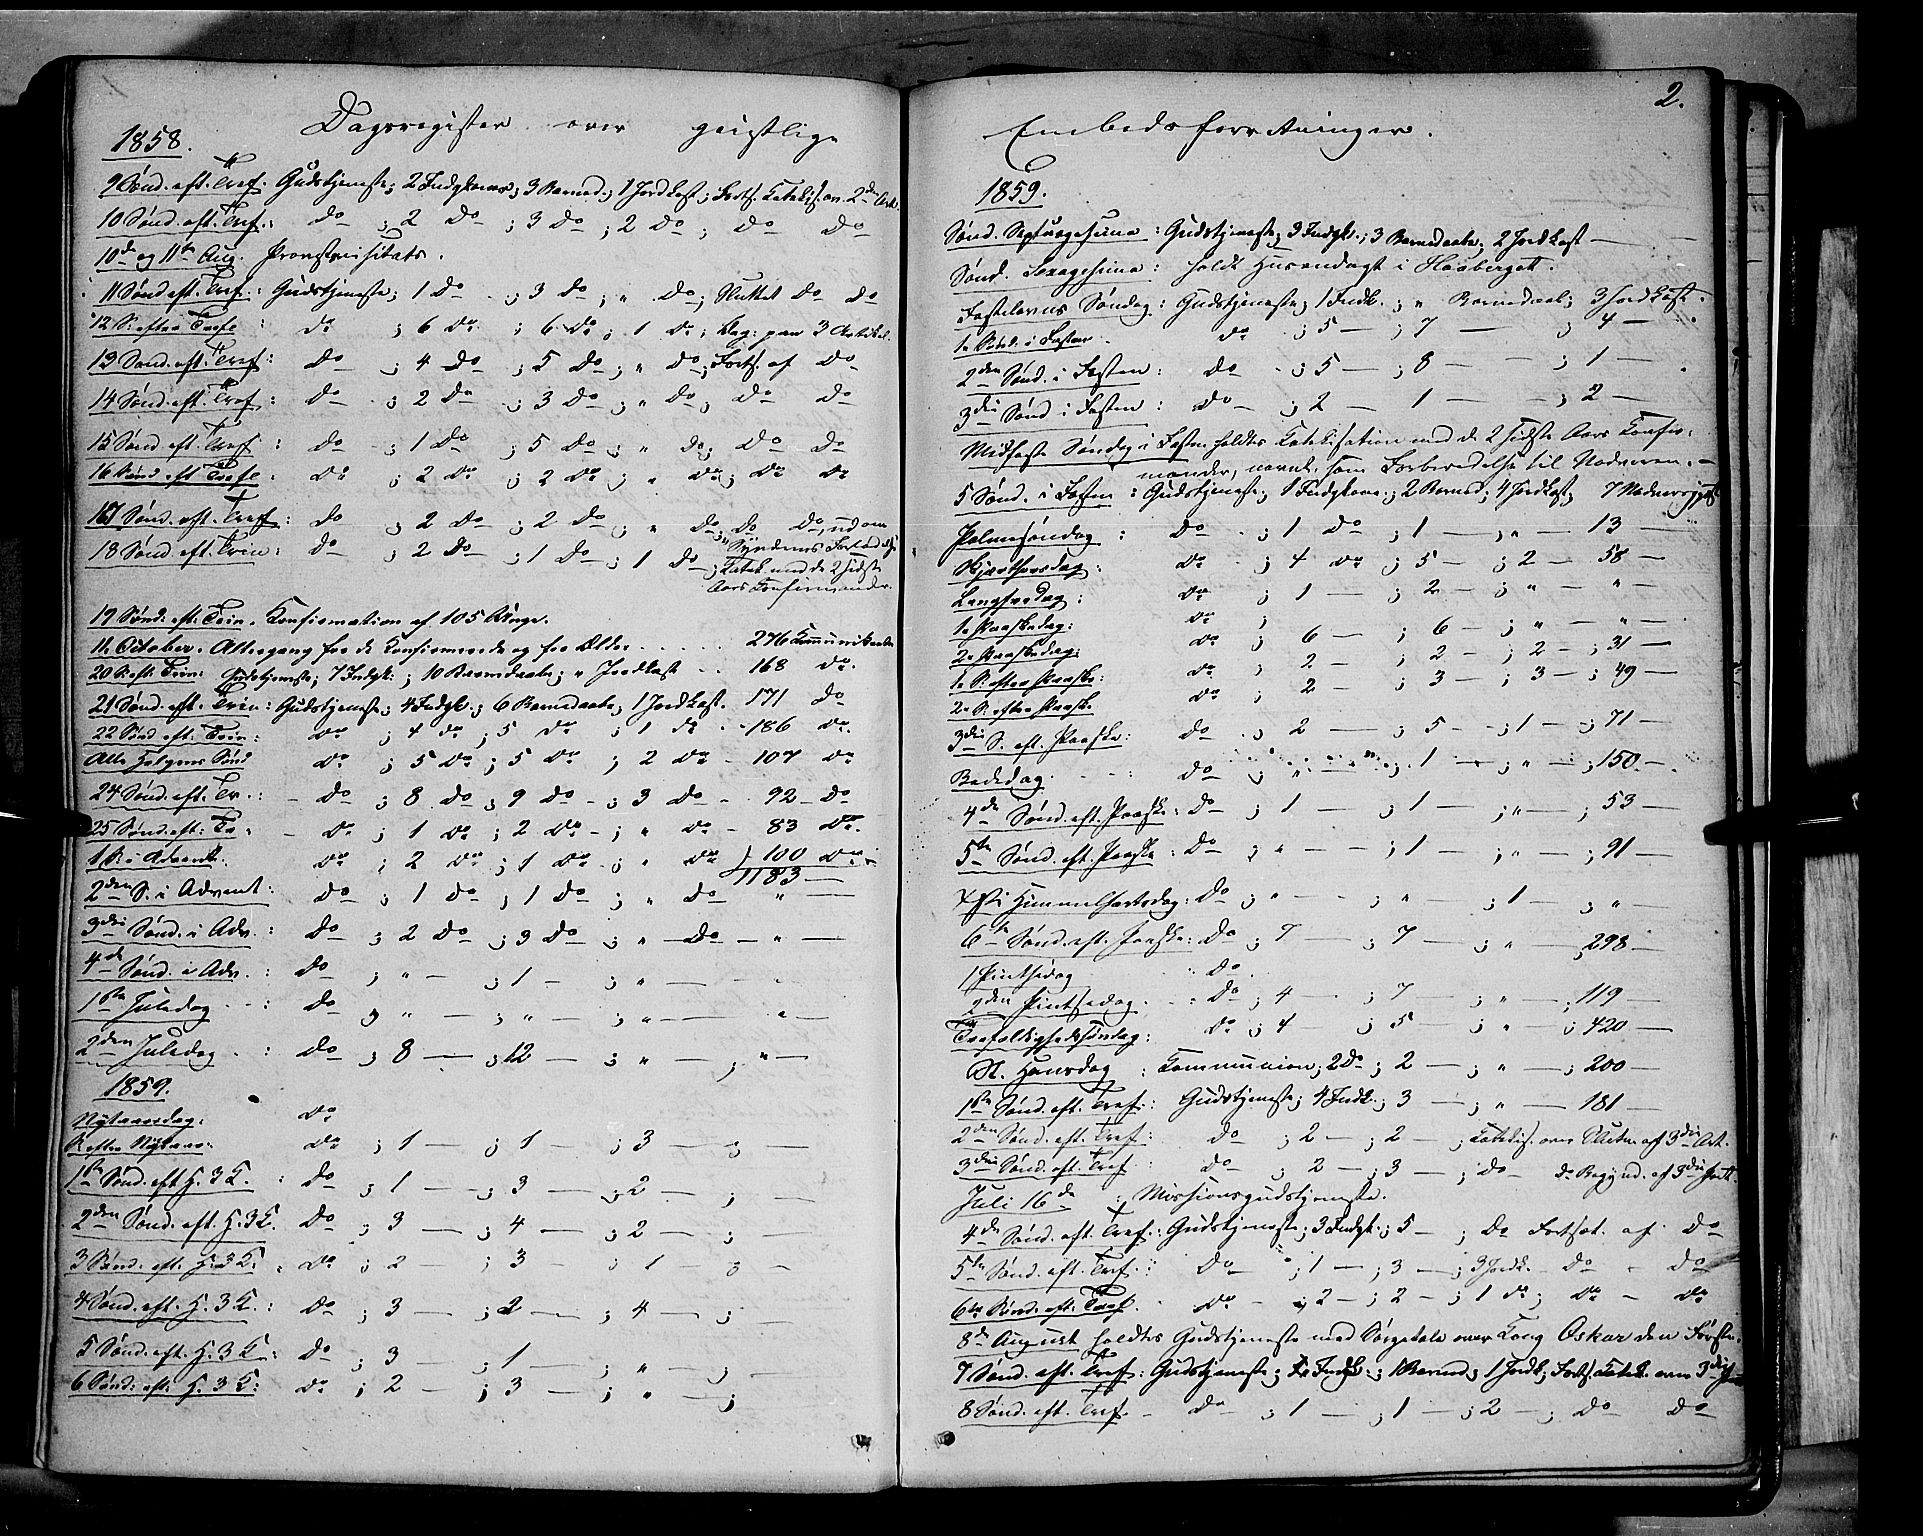 Dagsregister over geistlige
1858.
9 Sønd. eft. Tref. Gudstjeneste; 2 Indgkoner; 3 Barned.; 1 Jordkast; Forts. Katekis. ov. 2den Art.
10 Sønd. eft. Tref.: Do ; 2 Do ; 3 Do ; 2 Do ; Do Do
10de og 11te Aug. Provstevisitats.
11 Sønd. eft. Tref.: Gudstjeneste; 1 Do ; 3 Do ; " Do ; Sluttet Do Do
12 S. efter Trefl : do ; 6 do ; 6 do ; 1 do ; Beg: paa 3 Artikel.
13 Sønd. eft. Tref: Do ; 4 Do ; 5 Do ; " Do ; Forts. af Do
14 Sønd. eft. Tref : Do ; 2 Do ; 3 Do ; " Do ; Do Do
15 Sønd. eft. Tref : Do ; 1 Do ; 5 Do ; " Do ; Do Do
16 Sønd. eft. Trefl : do ; 2 do ; 2 do ; " do ; do do
17 Sønd. eft. Tref : Do ; 2 Do ; 2 Do ; " Do ; Do Do, ud om
"Syndernes Forlad
18 Sønd. eft. Trin : Do ; 2 Do ; 1 Do ; 1 Do ; Katek. med de 2 sidste
Aars Konfirmander.
19 Sønd. eft. Trin. Konfirmation af 105 Unge.
11 October. Altergang for de Konfirmerede og for Ældre . . . . 276 Kommunikanter
20 S. eft: Trin: Gudstjeneste; 7 Indgk: ; 10 Barnedaabe; " Jordkast . . 168 do.
21 Sønd. eft. Trin: Gudstjeneste; 4 Indgk.; 6 Barnedaabe; 1 Jordkast. 171 Do
22 Sønd eft: Trin: do ; 4 do ; 5 do ; 1 do - 186 do.
Alle Helgens Sønd do ; 5 do ; 5 do ; 2 do - 107 do
24 Sønd. eft. Tr. : - Do ; 8 Do ; 9 Do - ; 3 Do - 92 - Do
25 Sønd. eft: Tr. - do ; 1 do ; 2 do - ; " do - 83 do.
1 S. i Advent. do ; 2 do ; 1 do ; " do 100 do
1183 —
2den S. i Advent: Do ; 1 Do ; 1 Do ; " Do "
3die Sønd. i Adv. : Do ; 2 Do ; 3 Do ; " — Do — " —
4de Sønd. i Adv. : Do ; " — ; 1 — ; " —
1ste Juledag . . : Do ; " — ; " — ; " — " —
2den Juledag . : Do ; 8 — ; 12 — ; " — ; " —
1859.
Nytaarsdag: do
S. efter Nytaar: do ; 1 — ; 1 — ; 3 — ;
1ste Sønd. eft H. 3 K. : Do ; 1 — ; 3 — ; 2 — ; —
2den Sønd. eft. H. 3 K. Do ; 3 — ; 4 — ; 2 — ; —
3 Sønd. eft. H. 3 K. : do ; 2 — ; 3 — ; 1 — ; —
4 Sønd. eft. H. 3 K. : Do ; 3 — ; 2 — ; 4 — ; —
5 Sønd. eft. H. 3 K. : Do ; 3 — ; 1 — ; " — ; —
6 Sønd: eft. H. 3 K: do ; 2 — ; 3 — ; " — ;
2.
Embedsforretninger.
1859.
Sønd. Septuagesima : Gudstjeneste; 3 Indgk.; 3 Barnedaabe; 2 Jordkast —
Sønd. Sexagesima : holdt Husandagt i Haaberget.
Fastelavns Søndag : Gudstjeneste; 1 Indk. ; " Barnedaab; 3 Jordkast.
1e Sønd. i Fasten . do ; 5 — ; 7 — ; 4 —
2den Sønd. i Fasten : Do ; 5 — ; 8 — ; 1 —
3die Sønd i Fasten : Do — ; 2 — 1 — ; 2 —
Midfaste Søndag i Fasten holdtes Katekisation med de 2 sidste Aars Konfir-
mander, navnl. som Forberedelse til Nadveren. —
5 Sønd. i Fasten : Gudstjeneste; 1 Indgkone; 2 Barned; 4 Jordkast; 7 Nadvergj
Palmesøndag : Do ; 1 Do ; 1 — ; " — 13 —
Skjærthorsdag : do ; 4 do ; 5 — ; 2 — 58 —
Langfredag : do ; 1 — ; 2 — ; " — " —
1e Paaskedag: do ;
2e Paaskedag: do ; 6 — ; 6 — ; " — " —
1e S. efter Paaske: do ; 2 — ; 2 — ; 2 — ; 31 —
2e S. efter Paaske do ; 2 — ; 3 — ; 3 — ; 49 —
3die S. eft. Paaske: do ; 2 — ; 5 — ; 1 — ; 71 —
Bededag . . . : Do ; " — ; 1 — ; " — ; 150 — .
4de Sønd. eft. Paaske: Do ; 1 — ; 1 — ; " — ; 53 —
5te Sønd. eft. Paaske : Do ; " — ; 1 — ; " — ; 91 —
Xsti Himmelfartsdag: Do ; " — ; " — ; 1 — ; " —
6te Sønd. eft. Paaske: Do ; 7 — ; 7 — ; " — ; 298 —
1 Pintsedag " Do .
2den Pintsedag . : Do ; 4 — ; 7 — ; " — ; 119 —
Trefoldighedssøndag: Do ; 4 ; 5 — ; " ; 420 —
St. Hansdag : Kommunion; 2 Do ; 2 — ; " — ; 200 —
1ste Sønd. eft. Tref. : Gudstjeneste; 4 Indk.; 3 — ; " — 181 —
2den Sønd. eft. Tref : do ; 2 — ; 2 — ; Katekis. over Slutn. af 3die Art.
3die Sønd. eft. Tref : Do — ; 2 — ; 3 — ; do — do Begynd. af 3die Part.
Juli 16de : Missionsgudstjeneste.
4de Sønd. eft. Tref. : Gudstjeneste; 3 Indgk.; 5 — ; Do Fortsat. af Do
5te Sønd. eft. Tref. : Do — ; 1 — ; 3 — ; 3 Jordk. — Do — Do
6te Sønd. eft: Tref. do — ; 2 — ; 2 — ; 1 do ; do — do
8de August holdtes Gudstjeneste med Sørgetale over Kong Oskar den Første.
7 Sønd. eft. Tref : Gudstjeneste; Indgk. ; 1 Barned; 1 Jordk; Forts. Katek. over 3die
8 Sønd. eft. Tref. — Do — ; 1 — ; 1 — ; 2 — ; Do Do